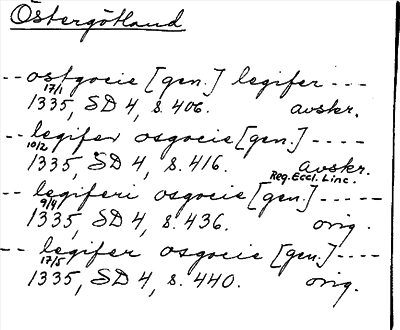 Östergötland
-- ostgocie [gen.] legifer ---
17/1
1335, SD 4, s. 406. avskr.
-- legifer osgocie [gen.] ----
10/2
1335, SD 4, s. 416. avskr.
Reg. Eccl. Linc.
-- legiferi osgocie [gen.] -----
9/4
1335, SD 4, s. 436. orig.
-- legifer osgocie [gen.] ----
17/5
1335, SD 4, s. 440. orig.